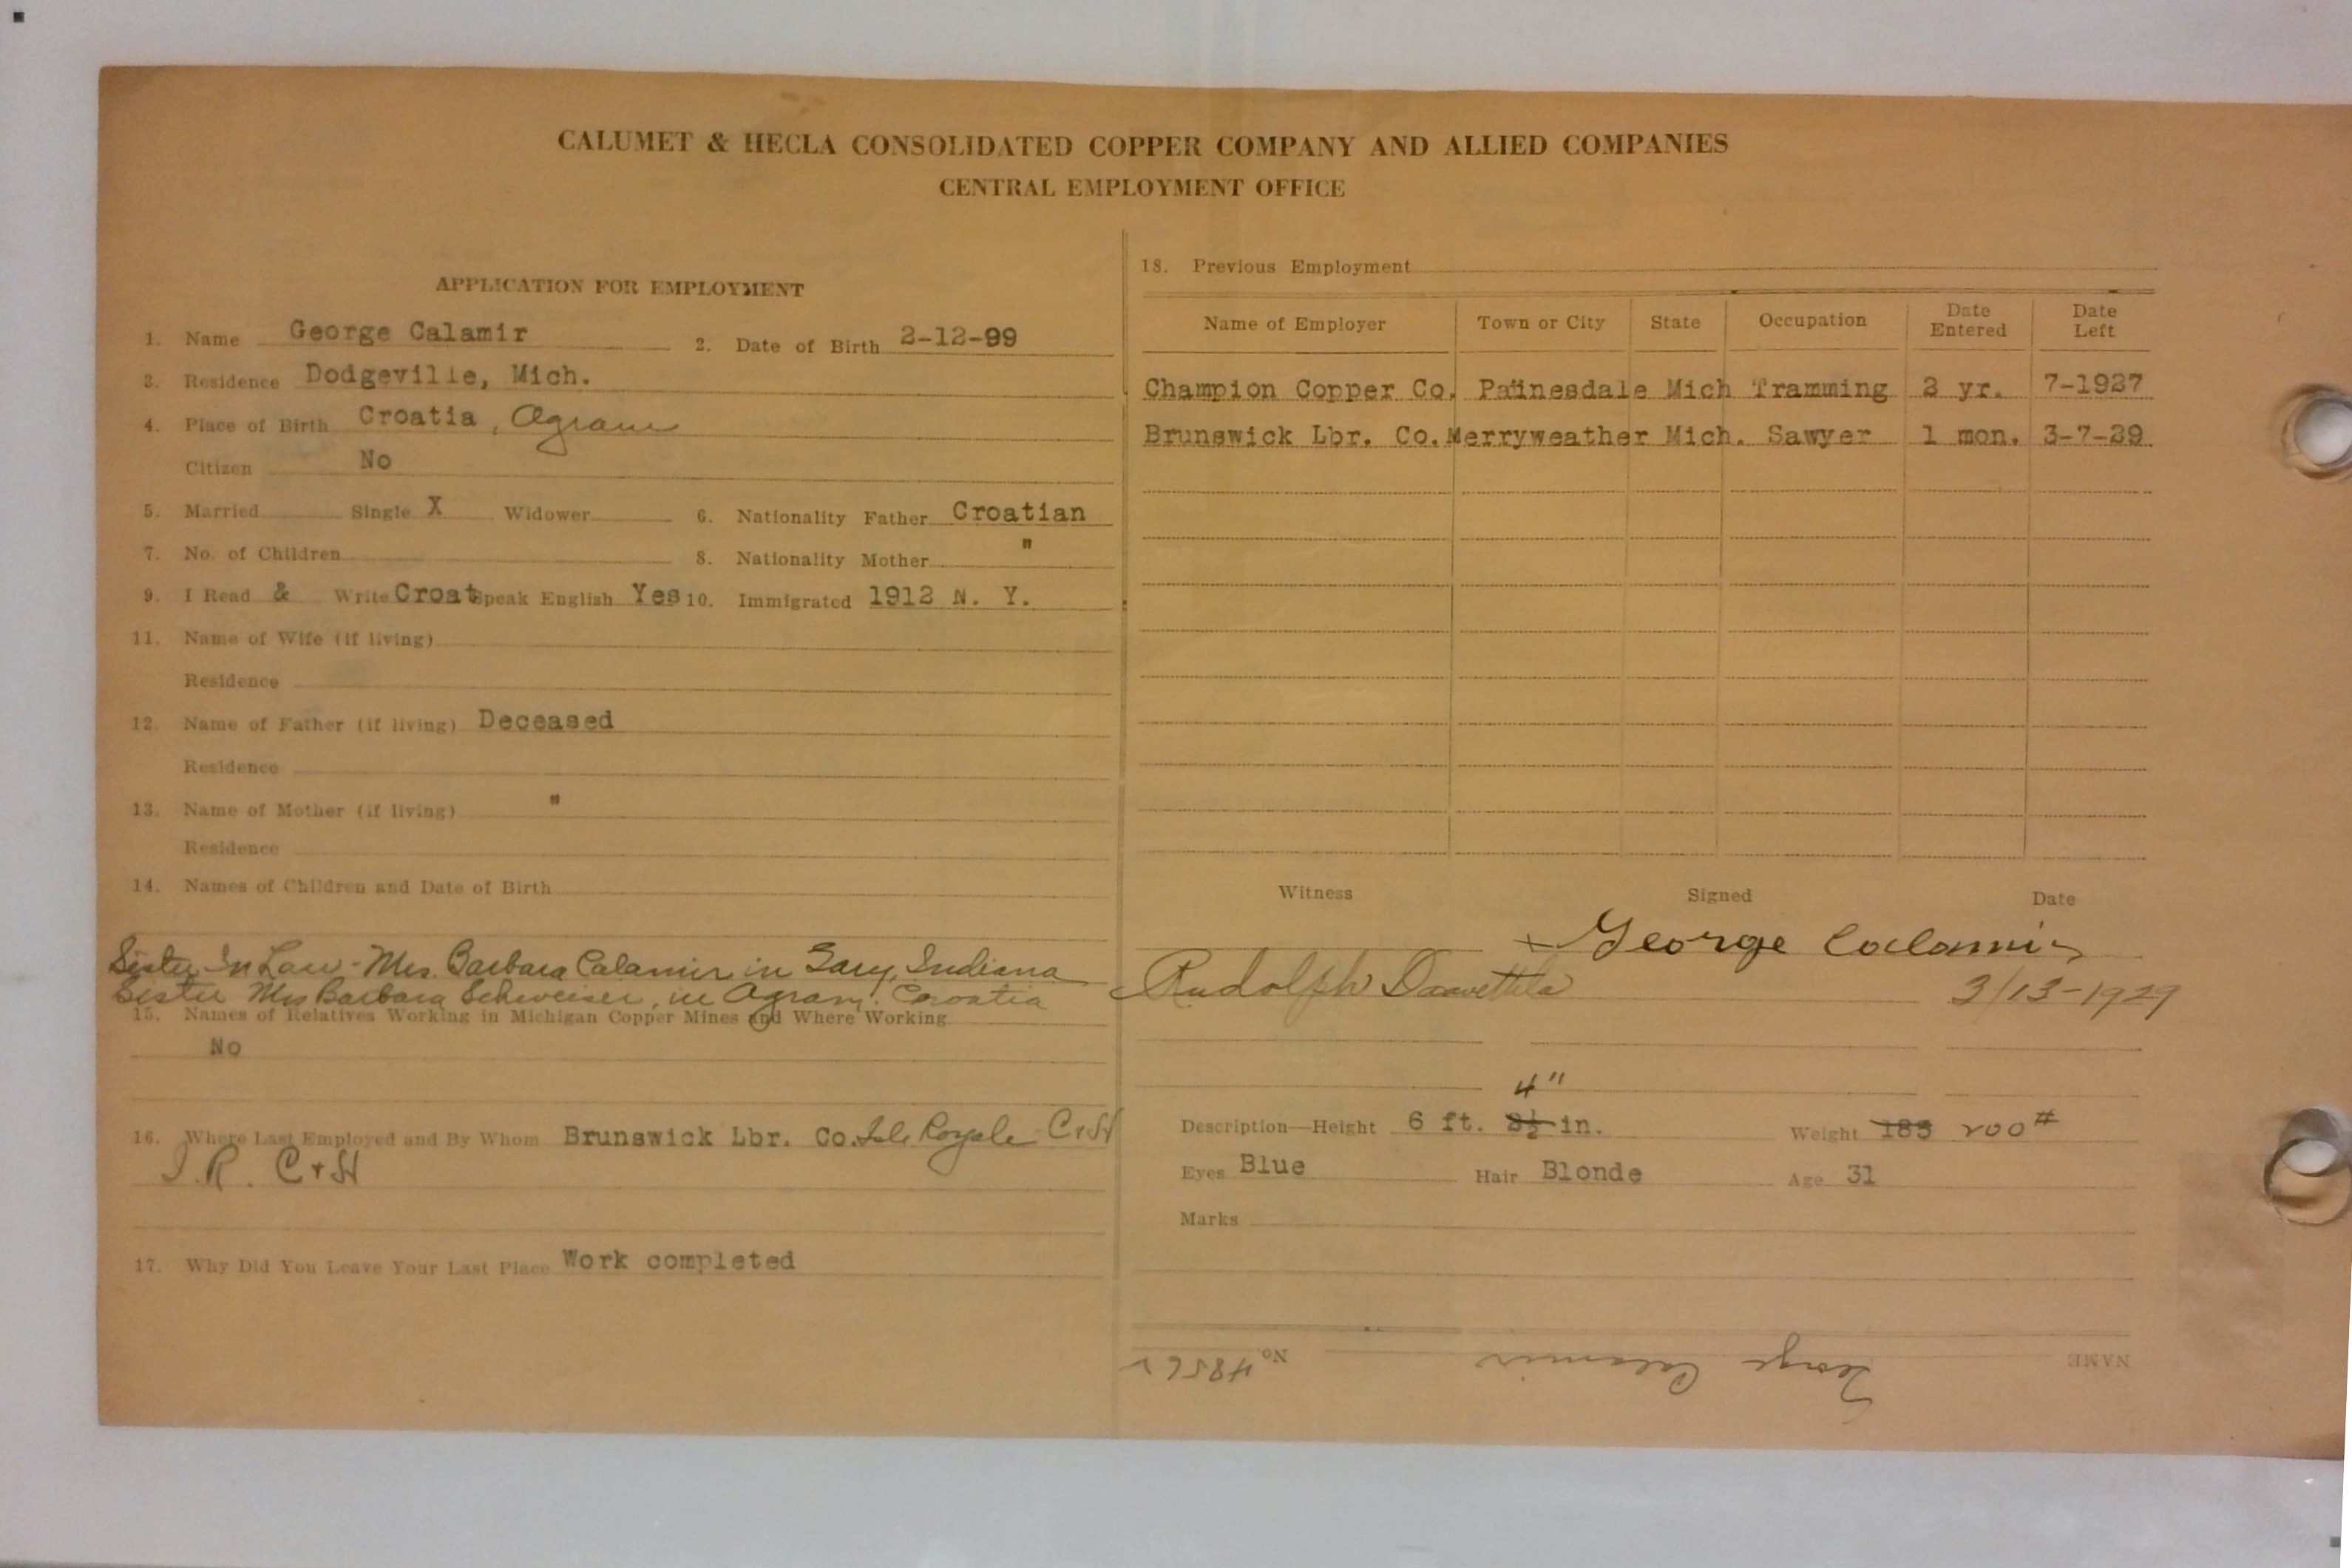 CALUMET & HECLA CONSOLIDATED COPPER COMPANY AND ALLIED COMPANIES
CENTRAL EMPLOYMENT OFFICE
APPLICATION FOR EMPLOYMENT
1. Name George Calamir 2. Date of Birth 2-12-99
3. Residence Dodgeville, Mich.
4. Place of Birth Croatia, Agram
Citizen No
5. Married Single X Widower 6. Nationality Father Croatian
7. No. of Children 8. Nationality Mother "
9. I Read & Write Croat Speak English Yes 10. Immigrated 1912 N. Y.
11. Name of Wife (if living)
Residence
12. Name of Father (if living) Deceased
Residence
13. Name of Mother (if living) "
Residence
14. Names of Children and Date of Birth
Sister In Law - Mrs. Barbara Calamir in Gary, Indiana
Sister Mrs Barbara Schweiser, in Agram, Croatia
15. Names of Relatives Working in Michigan Copper Mines and Where Working
No
16. Where Last Employed and By Whom Brunswick Lbr. Co. Isle Royale C+H
I.R. C+H
17. Why Did You Leave Your Last Place Work completed
18. Previous Employment
Name of Employer Town or City State Occupation Date Entered Date Left
Champion Copper Co. Painesdale Mich Tramming 2 yr. 7-1927
Brunswick Lbr. Co. Merryweather Mich. Sawyer 1 mon. 3-7-29
Witness Signed Date
x George Calamir
Rudolph 3/13-1929
4"
Description—Height 6 ft. 3½ in. Weight 185 200#
Eyes Blue Hair Blonde Age 31
Marks
NAME George Calamir No.